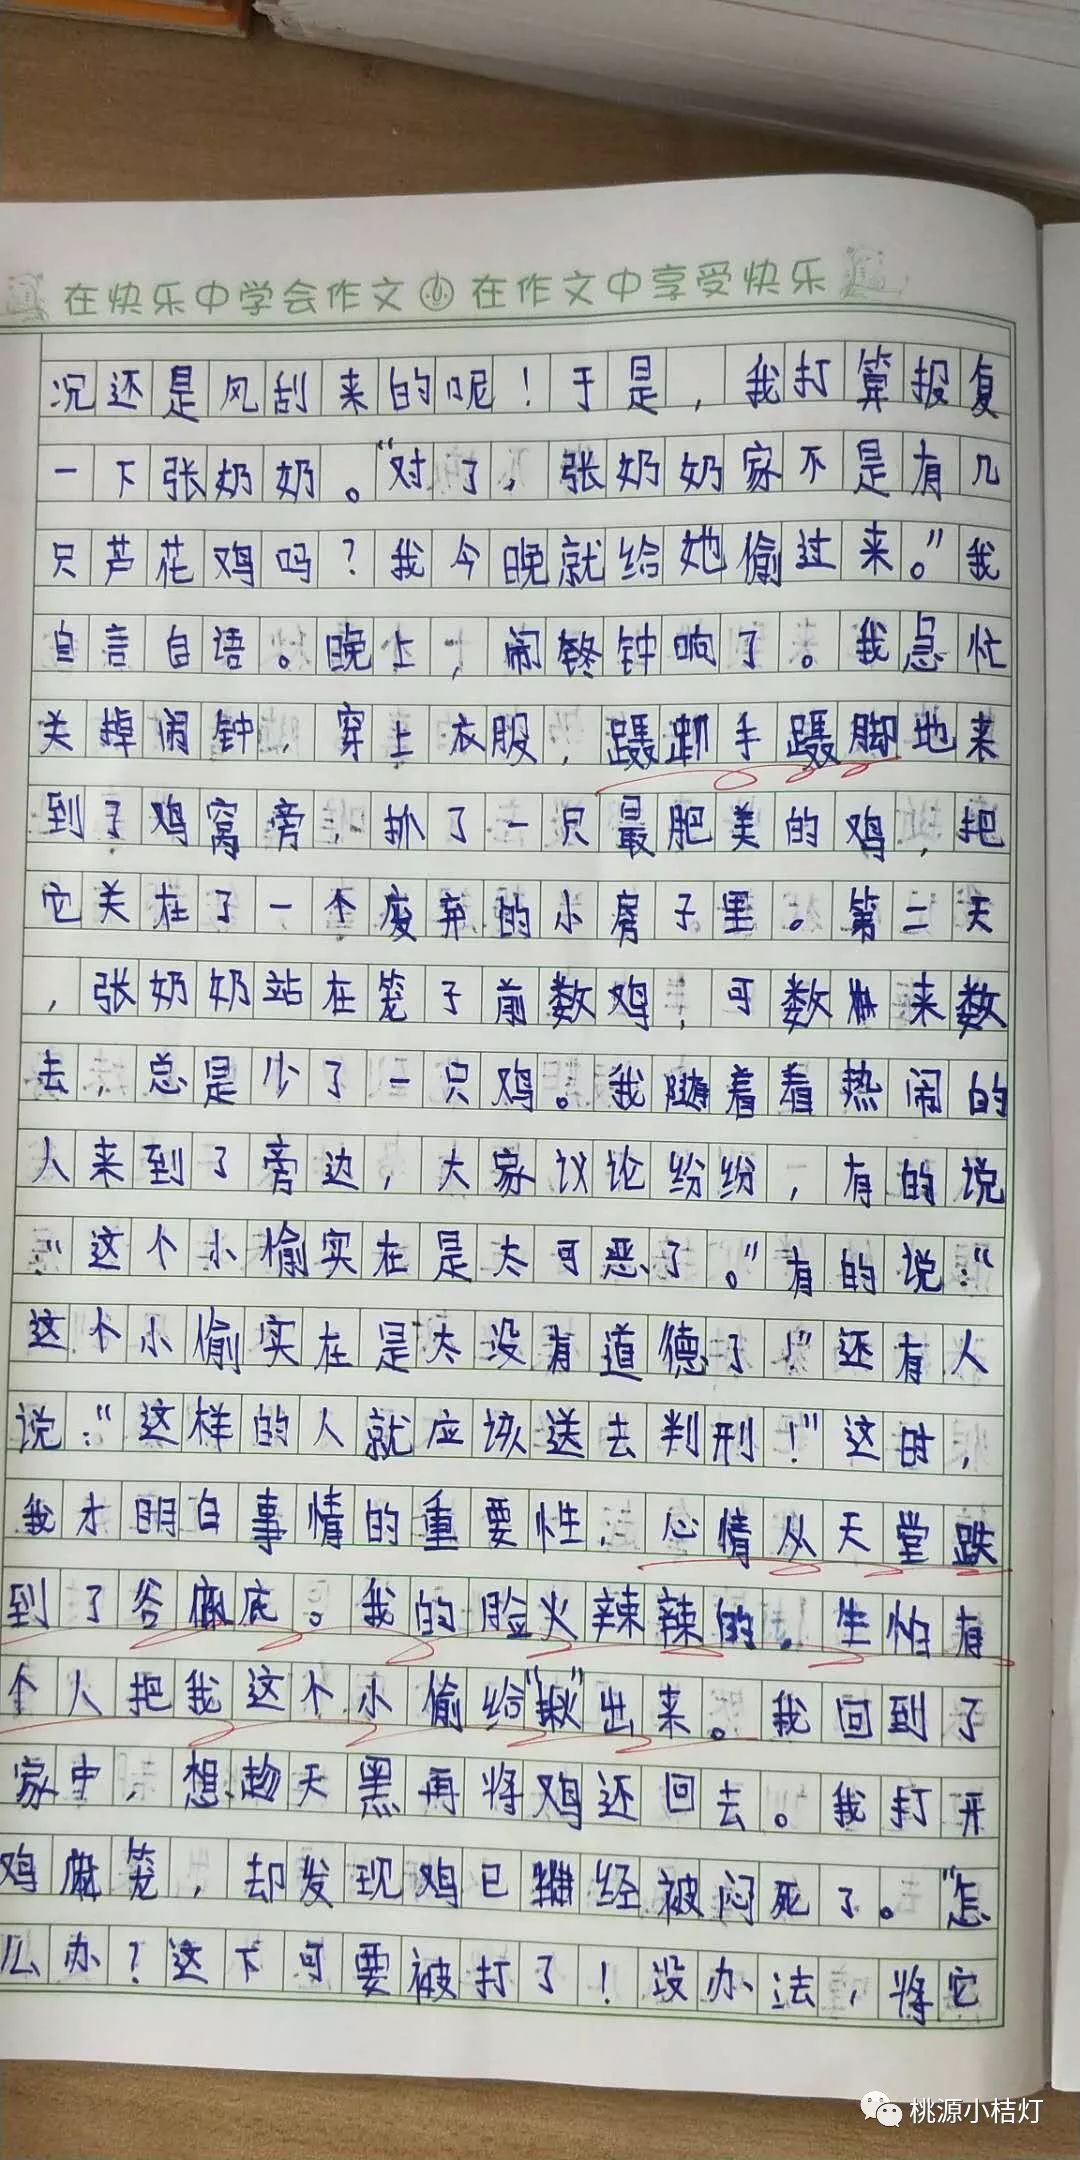 在快乐中学会作文 在作文中享受快乐
况还是风刮来的呢！于是，我打算报复
一下张奶奶。“对了，张奶奶家不是有几
只芦花鸡吗？我今晚就给她偷过来。”我
自言自语。晚上，闹钟响了。我急忙
关掉闹钟，穿上衣服，蹑手蹑脚地来
到了鸡窝旁，抓了一只最肥美的鸡，把
它关在了一个废弃的小房子里。第二天
，张奶奶站在笼子前数鸡，可数来数
去，总是少了一只鸡。我随着看热闹的
人来到了旁边，大家议论纷纷，有的说
：“这个小偷实在是太可恶了。”有的说：“
这个小偷实在是太没有道德了！”还有人
说：“这样的人就应该送去判刑！”这时，
我才明白事情的重要性，心情从天堂跌
到了谷底。我的脸火辣辣的，生怕有
个人把我这个小偷给“揪”出来。我回到了
家中，想趁天黑再将鸡还回去。我打开
鸡笼，却发现鸡已经被闷死了。“怎
么办？这下可要被打了！没办法，将它
桃源小桔灯